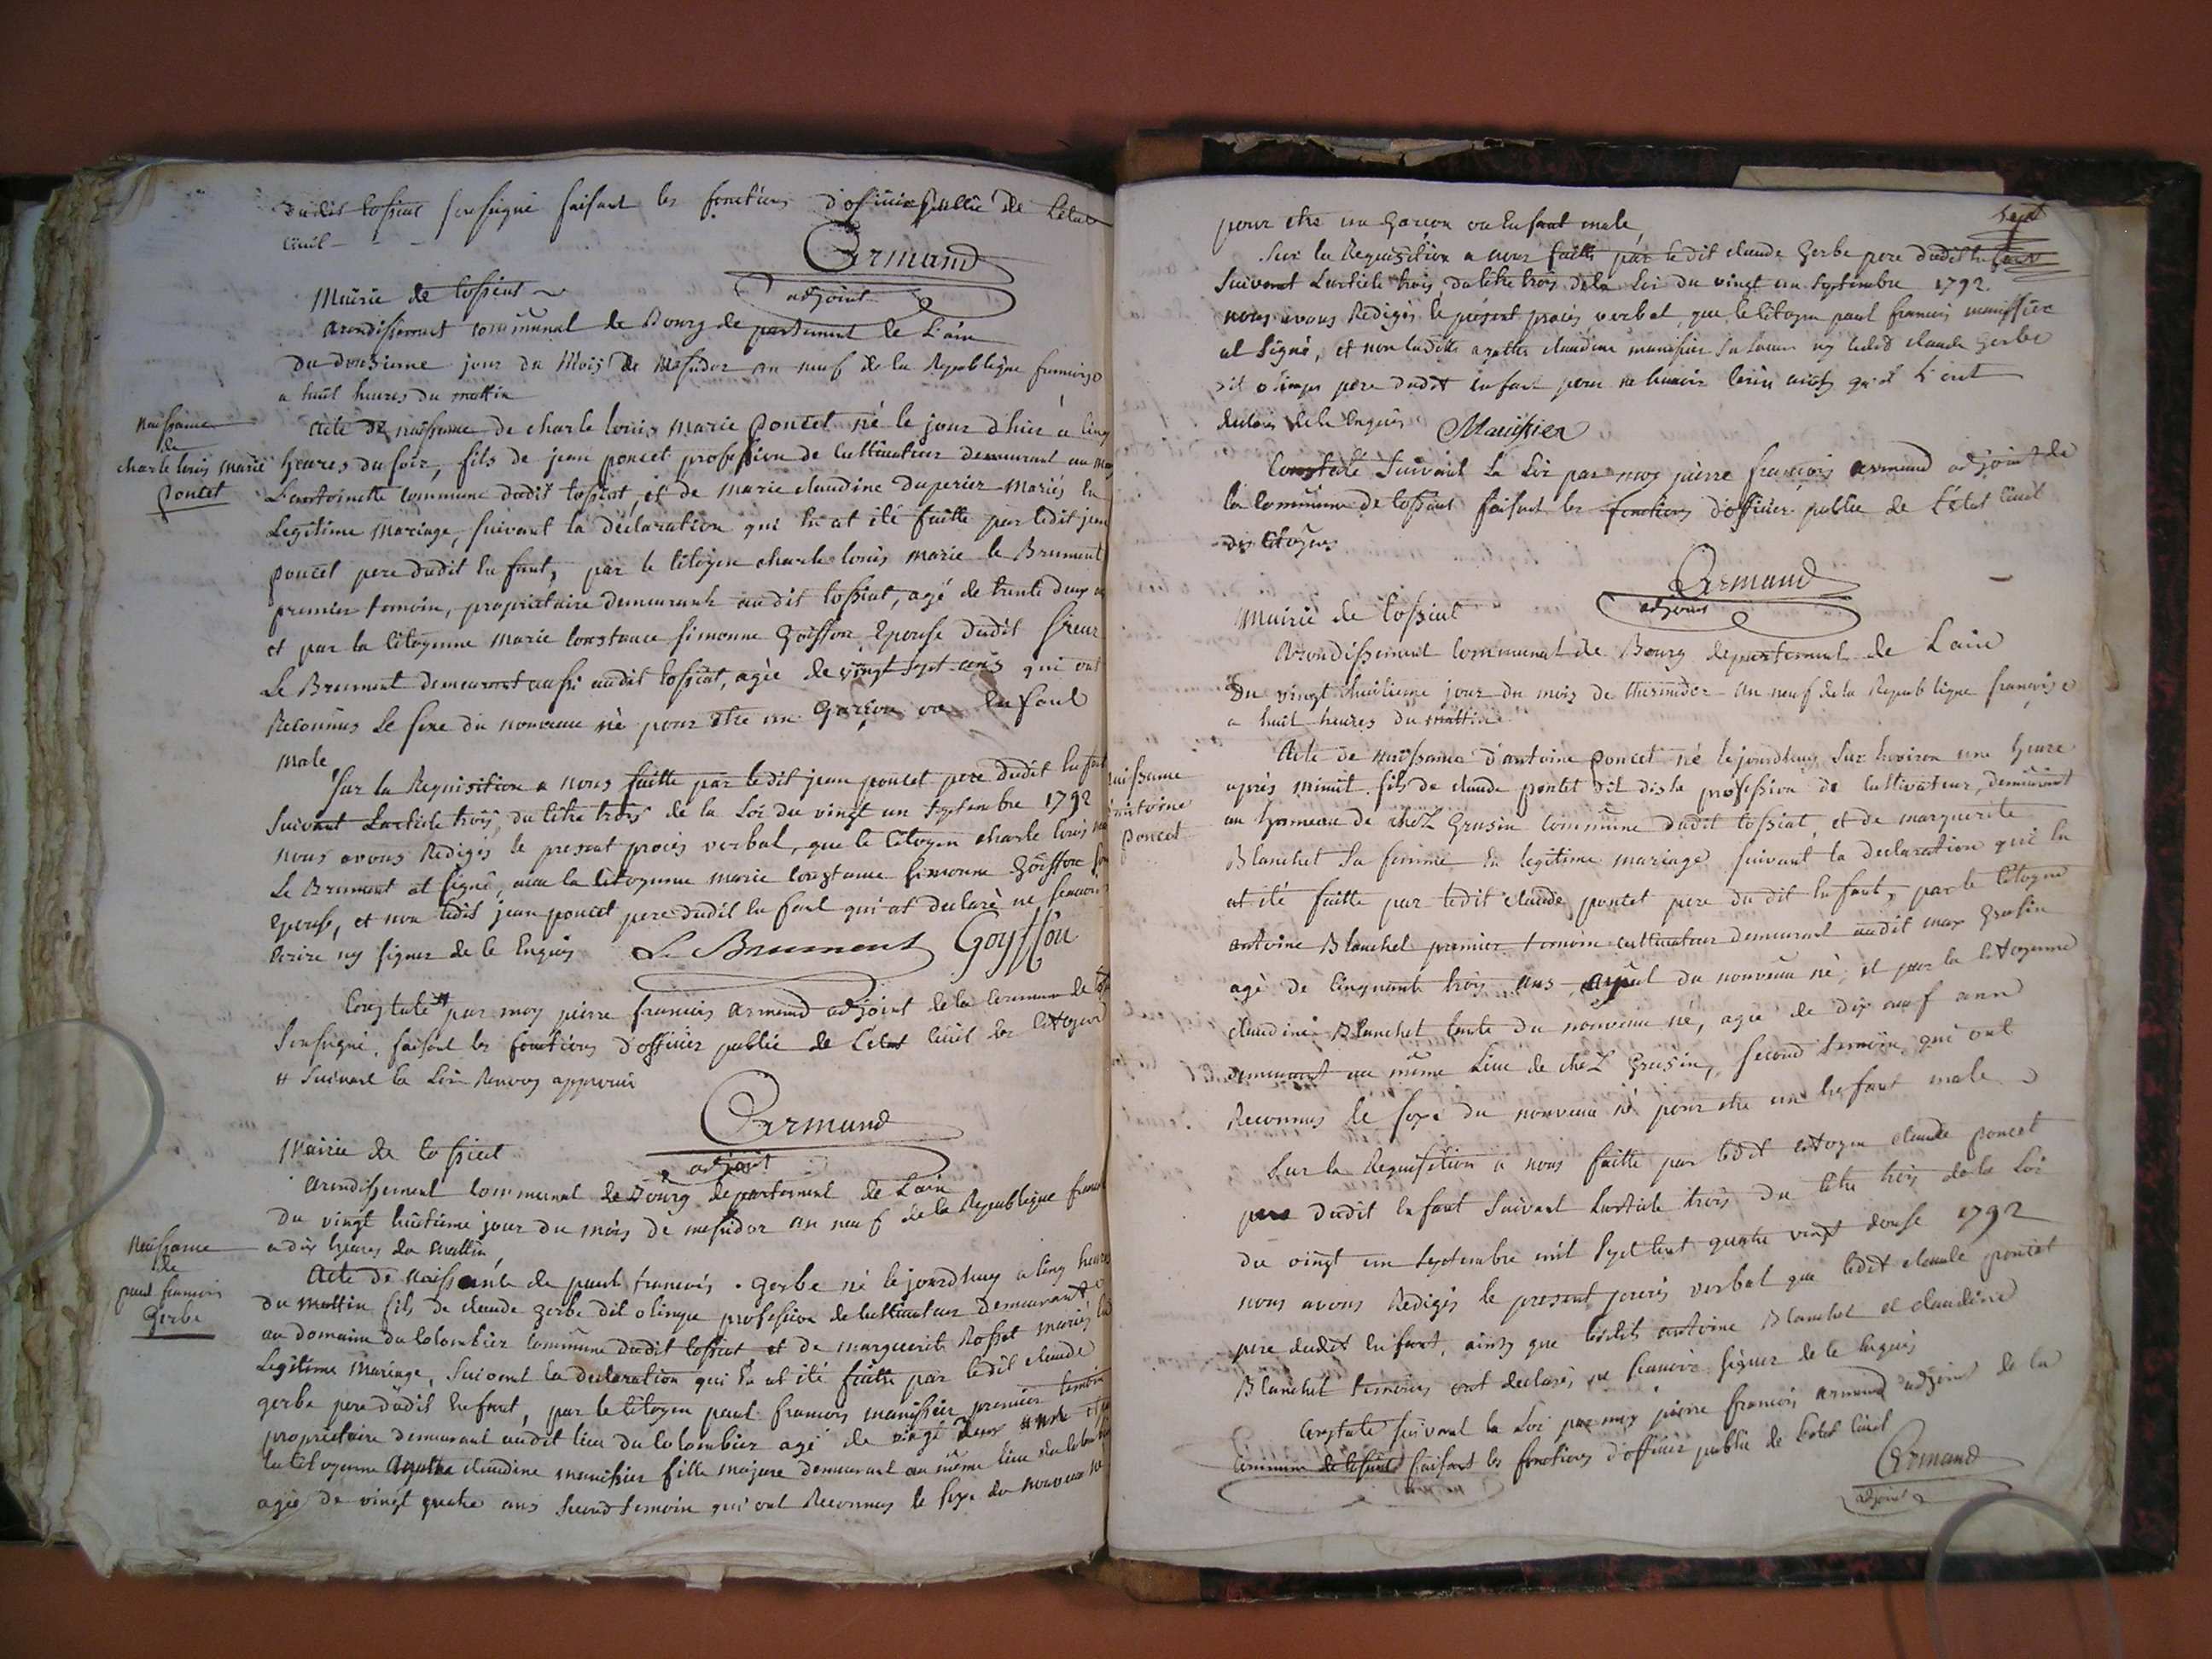 dudit tossiat sousigné faisant les fonctions d'officier public de Letat
Civil - - -
Armand
adjoint
Mairie de tossiat
arondissement communal de Bourg departement de L'ain
du dousieme jour du Mois de Mesidor an neuf de la Republique francoise
a huit heures du mattin
naissance
de
charle louis marie
poncet
Acte de naissance de charle louis marie poncet né le jour d'hier a cinq
heures du soir, fils de jean poncet profession de Cultivateur demeurant au
L'antoinette commune dudit tossiat, et de marie claudine duperier mariés En
Legitime mariage, suivant la declaration qui En at été faitte par ledit jean
poncet pere dudit Enfant, par le Citoyen charle louis marie le Brument
premier temoin, proprietaire demeurant audit tossiat, agé de trente deux
et par la Citoyenne marie Constance simonne Goiffon Epouse dudit sieur
Le Brument demeurant aussi audit tossiat, agée de vingt sept ans qui ont
Reconnus Le sexe du nouveau né pour etre un Garçon ou Enfant
male
Sur la Requisition a nous faitte par ledit jean poncet pere dudit Enfant
suivant Larticle trois, du titre trois de la Loi du vingt un Septembre 1792
nous avons Redigés le present procés verbal, que le Citoyen charle louis
Le Brument at signé, avec la Citoyenne marie Constance simonne Goiffon son
Epouse, et non ledit jean poncet pere dudit Enfant qui at declaré ne scavoir
Ecrire ny signer de le Enquis Le Brument Goyffon
Constaté # par moy pierre francois armand adjoint de la Commune de
sousigné, faisant les fonctions d'officier public de L'etat Civil des Citoyens
# suivant la Loi Renvoy approuvé
Armand
adjoint
Mairie de tossiat
arondissement Communal de Bourg departement de Lain
du vingt huitieme jour du mois de mesidor an neuf de la Republique
a dix heures du mattin
Naissance
de
paul francois
Gerbe
Acte de Naissance de paul francois Gerbe né le jourdhuy a cinq heures
du mattin fils de claude gerbe dit olinge profession de Cultivateur demeurant
au domaine du Colombier Commune dudit tossiat et de marguerite Rosset mariés
Legitime mariage, suivant la declaration qui En at été faitte par ledit claude
gerbe pere dudit Enfant, par le Citoyen paul francois manissier premier temoin
proprietaire demeurant audit lieu du Colombier agé de vingt deux
la Citoyenne agathe claudine manissier fille majeure demeurant au même lieu du
agée de vingt quatre ans second temoin qui ont Reconnus le sexe du nouveau né
pour etre un Garcon ou Enfant male,
sept
Sur la Requisition a nous faitte par le dit claude Gerbe pere dudit
suivant Larticle trois, du titre trois de la Loi du vingt un Septembre 1792
nous avons Redigés le présent procés verbal, que le Citoyen paul francois manissier
at Signé, et non ladite agathe claudine manissier sa soeur ny ledit claude Gerbe
dit olinge pere dudit Enfant pour ne scavoir Ecrire ainsy qu'il l'ont
declarés de le Enquis Manissier
Constaté suivant La Loi par moy pierre francois armand adjoint de
la Commune de tossiat faisant les fonctions d'officier public de L'état Civil
des Citoyens
Armand
adjoint
Mairie de tossiat
Arondissement Communal de Bourg departement de Lain
du vingt huitieme jour du mois de thermidor an neuf de la Republique francoise
a huit heures du mattin
naissance
d'antoine
poncet
Acte de naissance d'antoine poncet né lejourdhuy Sur Environ une heure
après minuit fils de claude poncet dit profession de Cultivateur, demeurant
au hameau de chéz Grusin Commune dudit tossiat, et de marguerite
Blanchet sa femme En legitime mariage suivant la declaration qui En
at été faitte par ledit claude poncet pere du dit Enfant, par le Citoyen
antoine Blanchet premier temoin cultivateur demeurant audit max Grusin
agé de Cinquante trois ans, ayeul du nouveau né, et par la Citoyenne
claudine Blanchet tante du nouveau né, agée de dix neuf ann
demeurant au même Lieu de chéz Grusin, second temoin, qui ont
Reconnus le sexe du nouveau né pour etre un Enfant male
Sur la Requisition a nous faitte par ledit citoyen claude poncet
pere dudit Enfant suivant Larticle trois du titre trois de la Loi
du vingt un Septembre mil Sept Cent quatre vingt douse 1792
nous avons Redigés le present procés verbal que ledit claude poncet
pere dudit Enfant, ainsy que lesdits antoine Blanchet et claudine
Blanchet temoins ont declarés ne scavoir signer de le Enquis
Constaté suivant la Loi par moy pierre francois armand adjoint de la
Commune de tossiat faisant les fonctions d'officier public de Letat Civil
Armand
adjoint